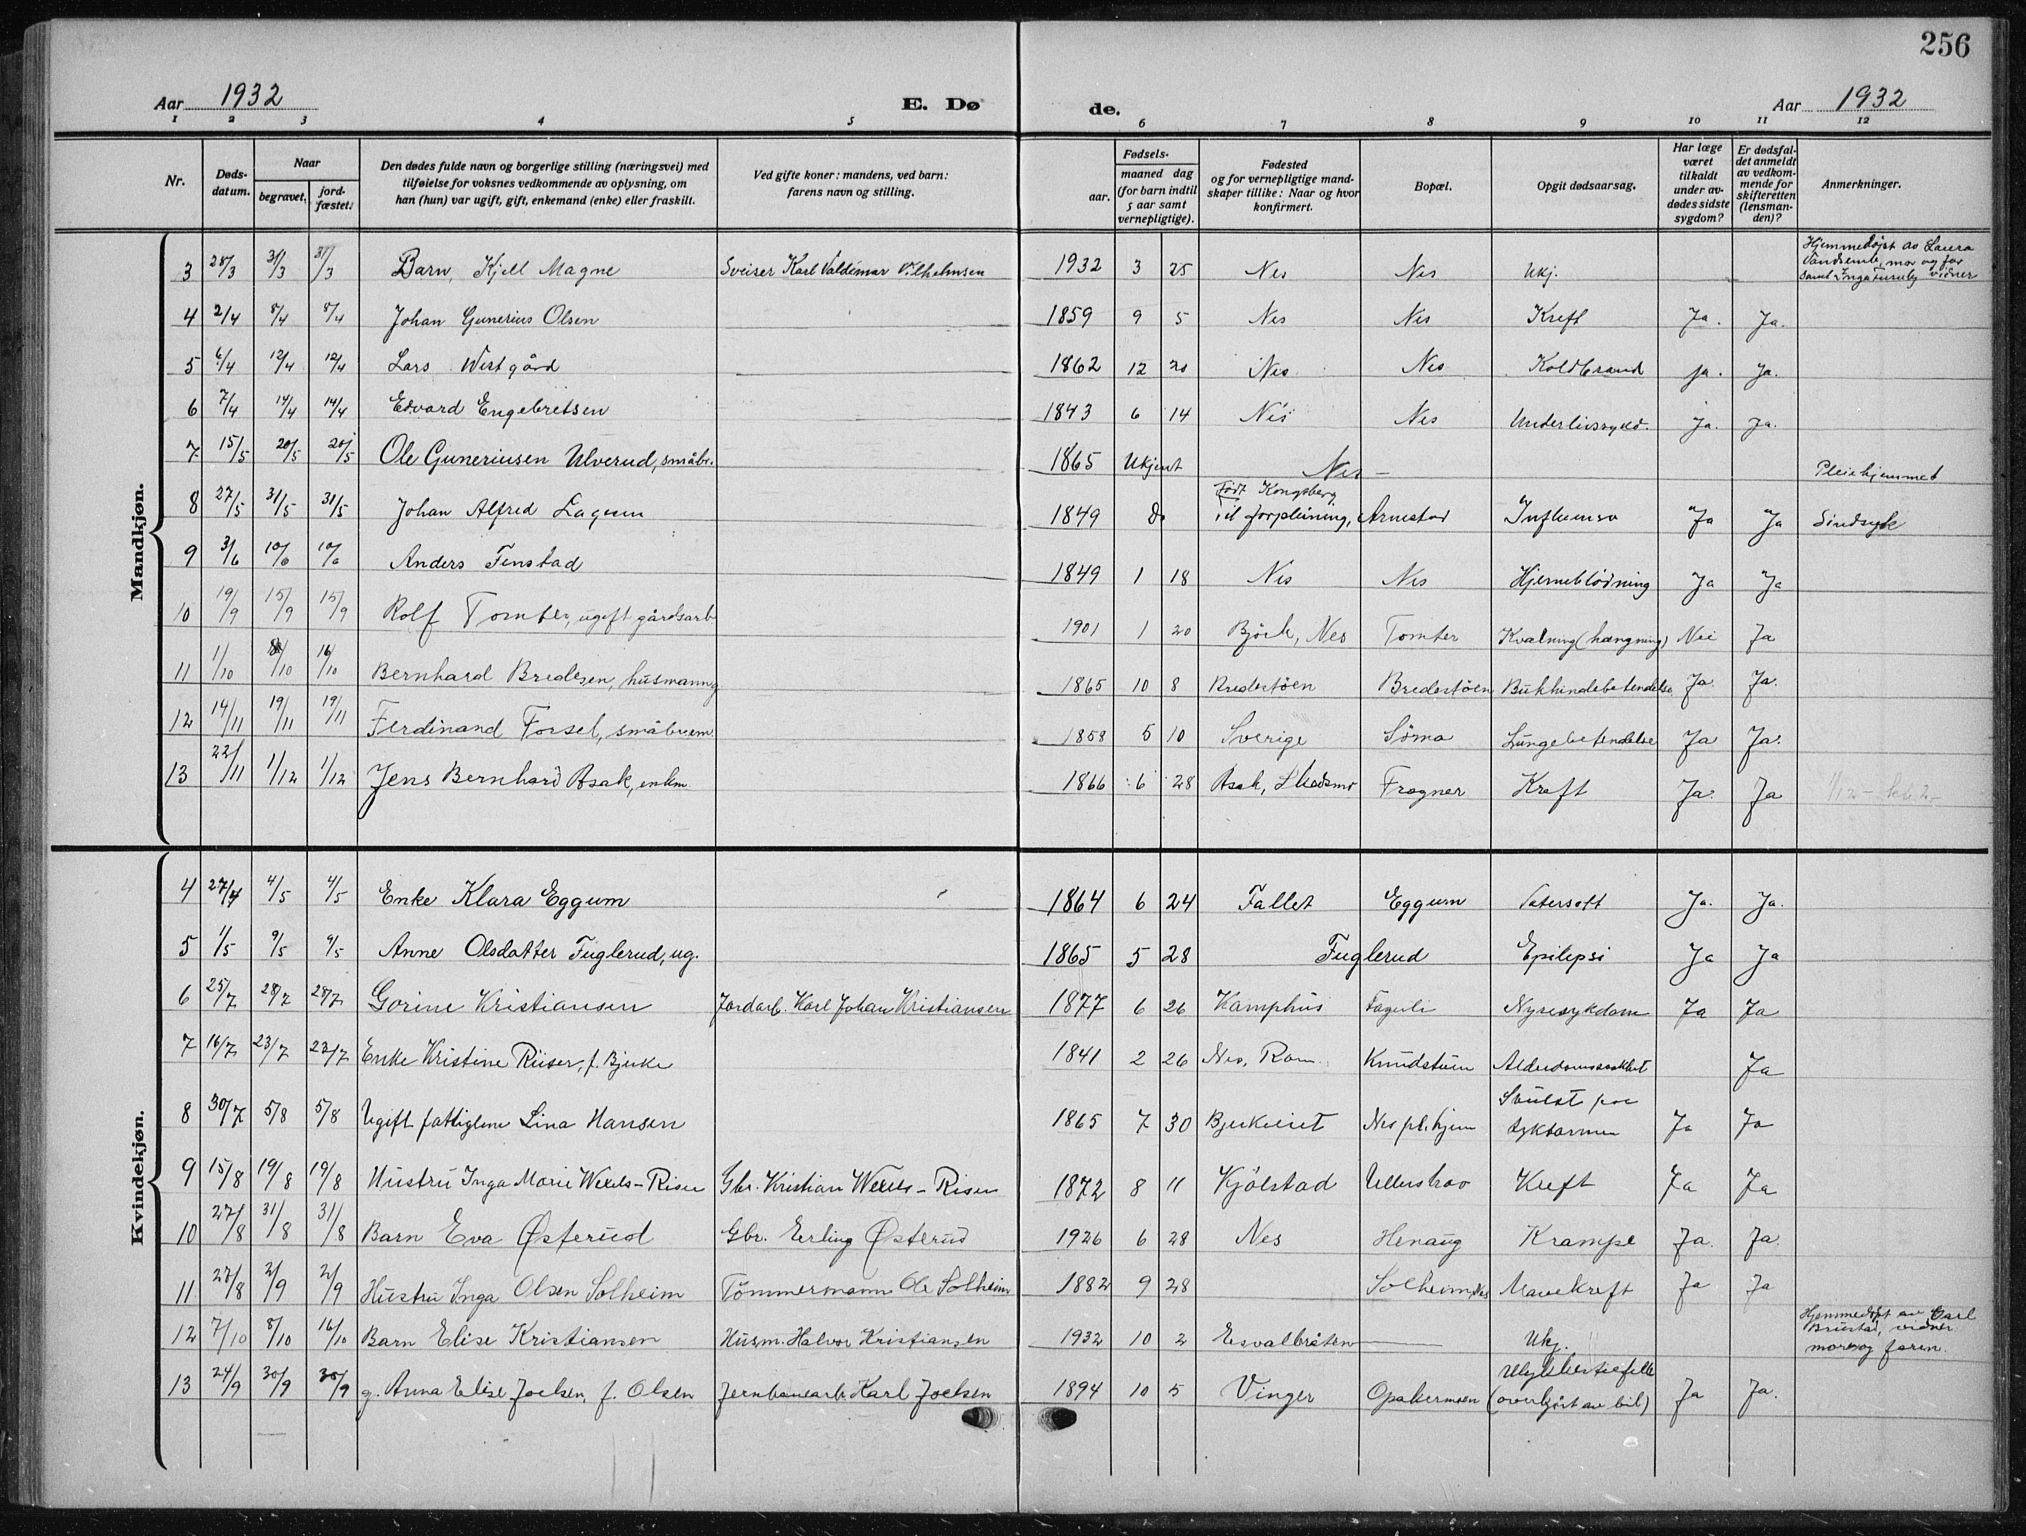 256
Aar 1932 E. Dø de. Aar 1932
1 2 3 4 5 6 7 8 9 10 11 12
Nr.
Døds-
datum.
Naar
begravet.
jord-
fæstet.
Den dødes fulde navn og borgerlige stilling (næringsvei) med
tilføielse for voksnes vedkommende av oplysning, om
han (hun) var ugift, gift, enkemand (enke) eller fraskilt.
Ved gifte koner: mandens, ved barn:
farens navn og stilling.
Fødsels-
aar. maaned dag
(for barn indtil
5 aar samt
vernepligtige).
Fødested
og for vernepligtige mand-
skaper tillike: Naar og hvor
konfirmert.
Bopæl.
Opgit dødsaarsag.
Har læge
været
tilkaldt
under av-
dødes sidste
sygdom?
Er dødsfal-
det anmeldt
av vedkom-
mende for
skifteretten
(lensman-
den)?
Anmerkninger.
Mandkjøn.
3 28/3 31/3 31/3 Barn, Kjell Magne Sveiser Karl Valdemar Vilhelmsen 1932 3 25 Nes Nes Ukj. Hjemmedøpt av Laura
mor og far
samt Inga vidner
4 2/4 8/4 8/4 Johan Gunerius Olsen 1859 9 5 Nes Nes Kreft Ja. Ja.
5 6/4 12/4 12/4 Lars Westgård 1862 12 20 Nes Nes Koldbrand ja. Ja.
6 7/4 14/4 14/4 Edvard Engebretsen 1843 6 14 Nes Nes Underlivssykd. Ja. Ja.
7 15/5 20/5 20/5 Ole Guneriusen Ulverud, småbr. 1865 Ukjent Nes — Pleiehjemmet
8 27/5 31/5 31/5 Johan Alfred Lagum 1849 do Født Kongsberg
til forpleining, Arnestad Influensa Ja Ja Sindsyk
9 3/6 10/6 10/6 Anders Finstad 1849 1 18 Nes Nes Hjerneblødning Ja Ja
10 19/9 15/9 15/9 Rolf Tomter, ugift gårdsarb 1901 1 20 Bjørk, Nes Tomter Kvælning (hængning) Nei Ja
11 1/10 /10 16/10 Bernhard Bredesen, husmann g 1865 10 8 Bredestøen Bredestøen Bukhindebetendelse Ja Ja.
12 14/11 19/11 19/11 Ferdinand Forsel, småbr. em. 1858 5 10 Sverige Søma Lungebetendelse Ja Ja.
13 22/11 1/12 1/12 Jens Bernhard Asak, enkm 1866 6 28 Asak, Skedsmo Frogner Kreft Ja. Ja
Kvindekjøn.
4 27/4 4/5 4/5 Enke Klara Eggum 1864 6 24 Fallet Eggum Vatersott Ja. Ja.
5 1/5 9/5 9/5 Anne Olsdatter Fuglerud, ug. 1865 5 28 Fuglerud Epilepsi Ja Ja
6 25/7 28/7 28/7 Gorine Kristiansen Jordarb. Karl Johan Kristiansen 1877 6 26 Kamphus Fagerli Nyresykdom Ja Ja
7 16/7 23/7 23/7 Enke Kristine Riiser, f. Bjerke 1841 2 26 Nes, Rom. Knudstuen Alderdomssvakhet Ja
8 30/7 5/8 5/8 Ugift fattiglem Lina Hansen 1865 7 30 Bjerkeeiet Nes pl.hjem Svulst paa
tyktarmen Ja Ja
9 15/8 19/8 19/8 Hustru Inga Marie Wexels-Risen Gbr. Kristian Wexels-Risen 1872 8 11 Kjølstad Ullershov Kreft Ja Ja
10 27/8 31/8 31/8 Barn Eva Østerud Gbr. Erling Østerud 1926 6 28 Nes Henaug Krampe Ja. Ja.
11 27/8 2/9 2/9 Hustru Inga Olsen Solheim Tømmermann Ole Solheim 1882 9 28 Solheim, Nes Mavekreft Ja Ja
12 7/10 8/10 16/10 Barn Elise Kristiansen Husm. Halvor Kristiansen 1932 10 2 Esvalbråten — Ukj. Hjemmedøpt av Carl
Brustad, vidner
moren og faren.
13 24/9 30/9 30/9 g. Anna Elise Joelsen, f. Olsen Jernbanearb. Karl Joelsen 1894 10 5 Vinger Opakermoen Ulykkestilfelle
(overkjørt av bil) Ja Ja.